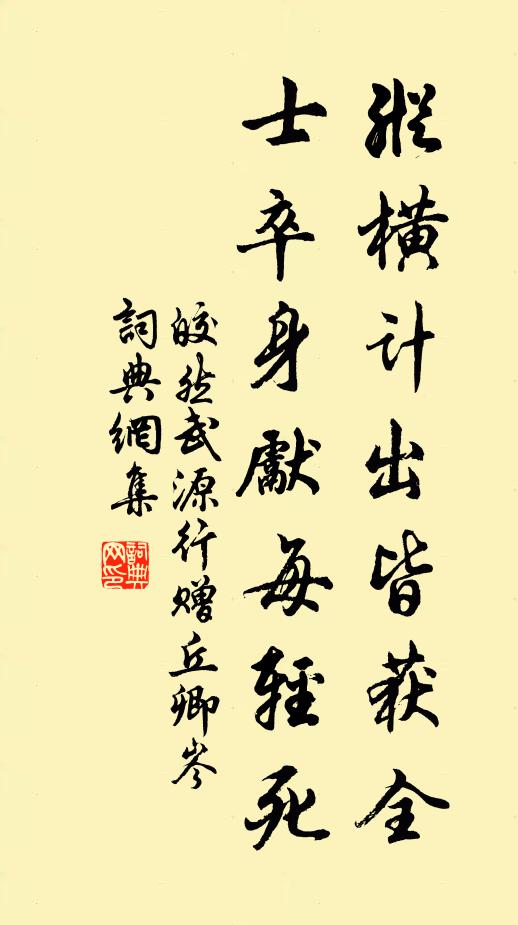 縱橫計出皆获全
士卒身獻每輕死
皎然武源行赠丘卿岑
詞典網集
詞典网印